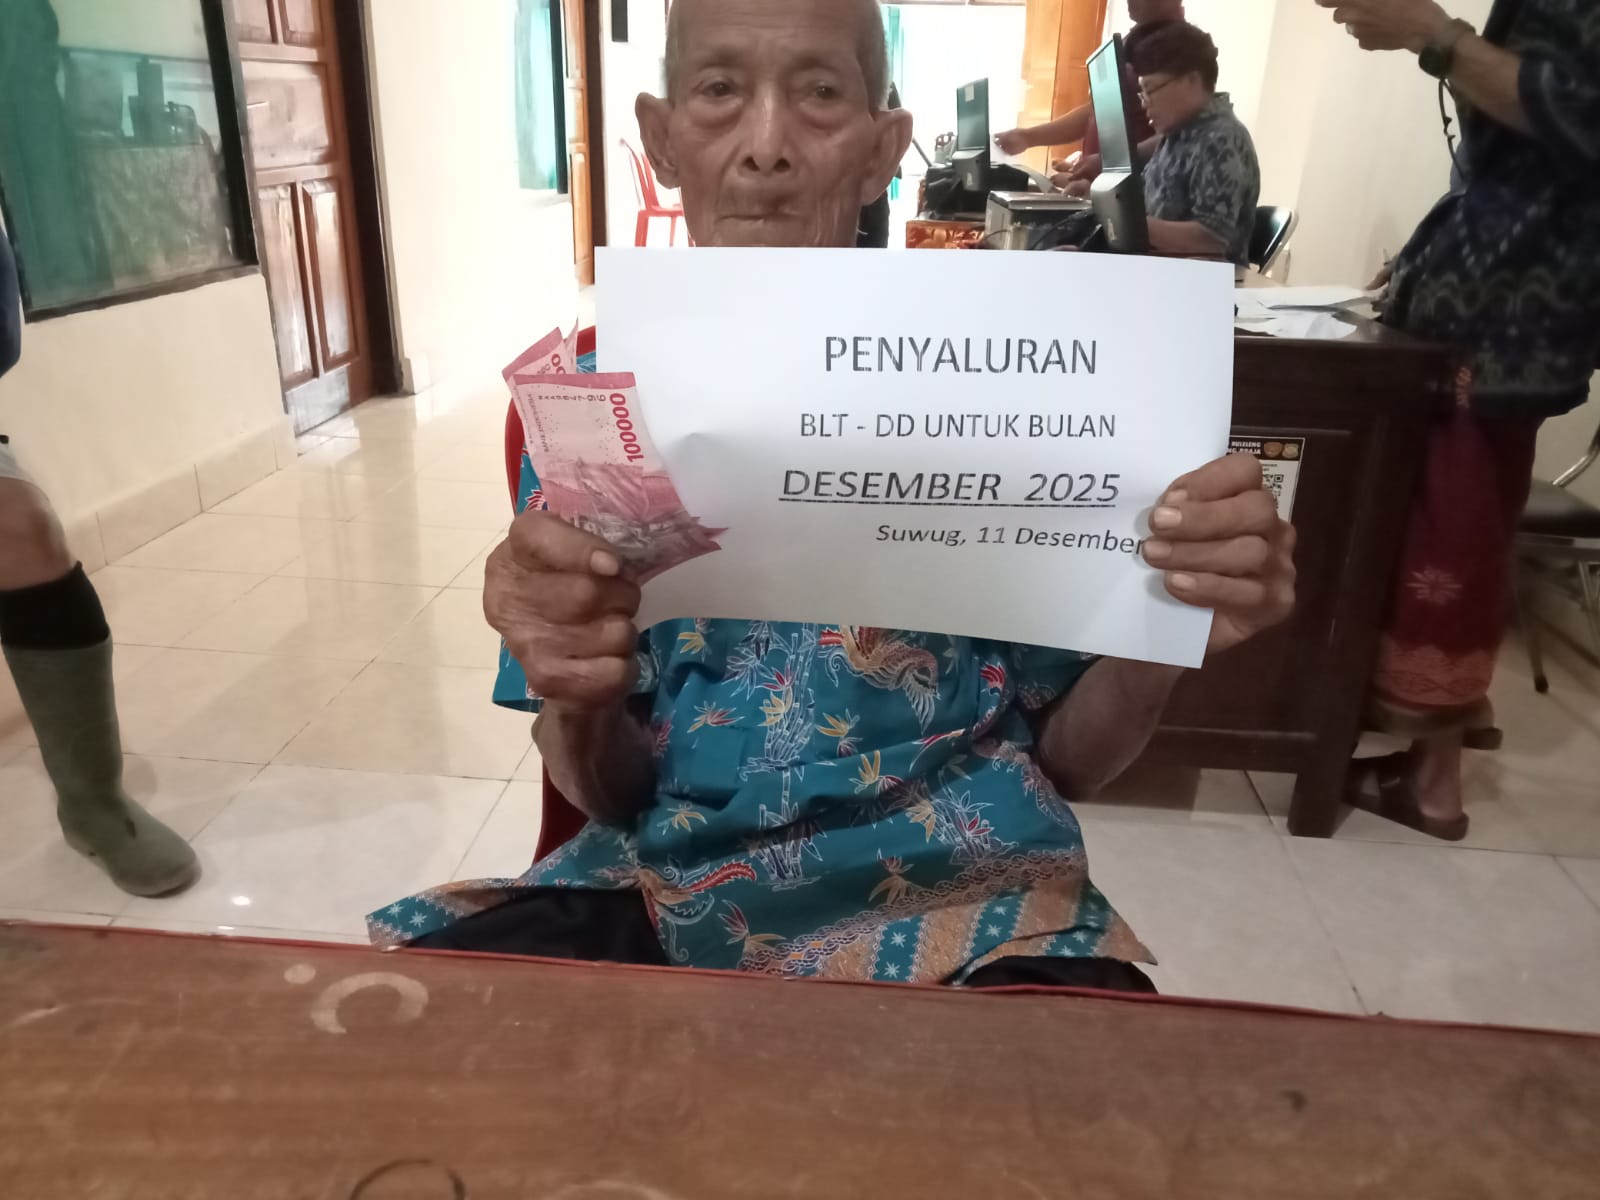 PENYALURAN
BLT - DD UNTUK BULAN
DESEMBER 2025
Suwug, 11 Desember
100000
BANK INDONESIA
BULELENG